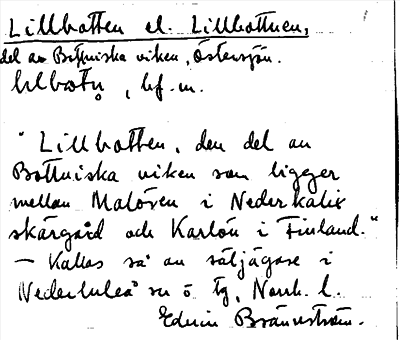 Lillbotten el. Lillbottnen,
del av Bottniska viken, Östersjön.
bf. m.
"Lillbotten, den del av
Bottniska viken som ligger
mellan Malören i Nederkalix
skärgård och Karlön i Finland."
— Kallas så av säljägare i
Nederluleå sn ö tg, Norrb. l.
Edvin Brännström.